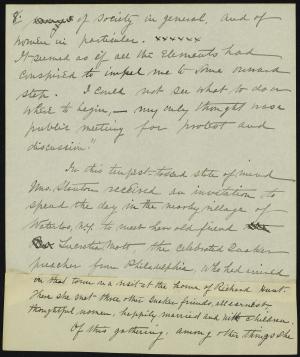 8.
of society in general, and of
women in particular. xxxxxx
It seemed as if all the Elements had
conspired to impel me to some onward
step. I could not see what to do or
where to begin, — my only thought was a
public meeting for protest and
discussion."
In this tempest-tossed state of mind
Mrs. Stanton received an invitation to
spend the day in the nearby village of
Waterloo, N.Y. to meet her old friend
Lucretia Mott, the celebrated Quaker
preacher from Philadelphia, who had arrived
in that town on a visit at the home of Richard Hunt.
There she met three other Quaker friends, all earnest
thoughtful women, happily married and with children.
Of this gathering, among other things she